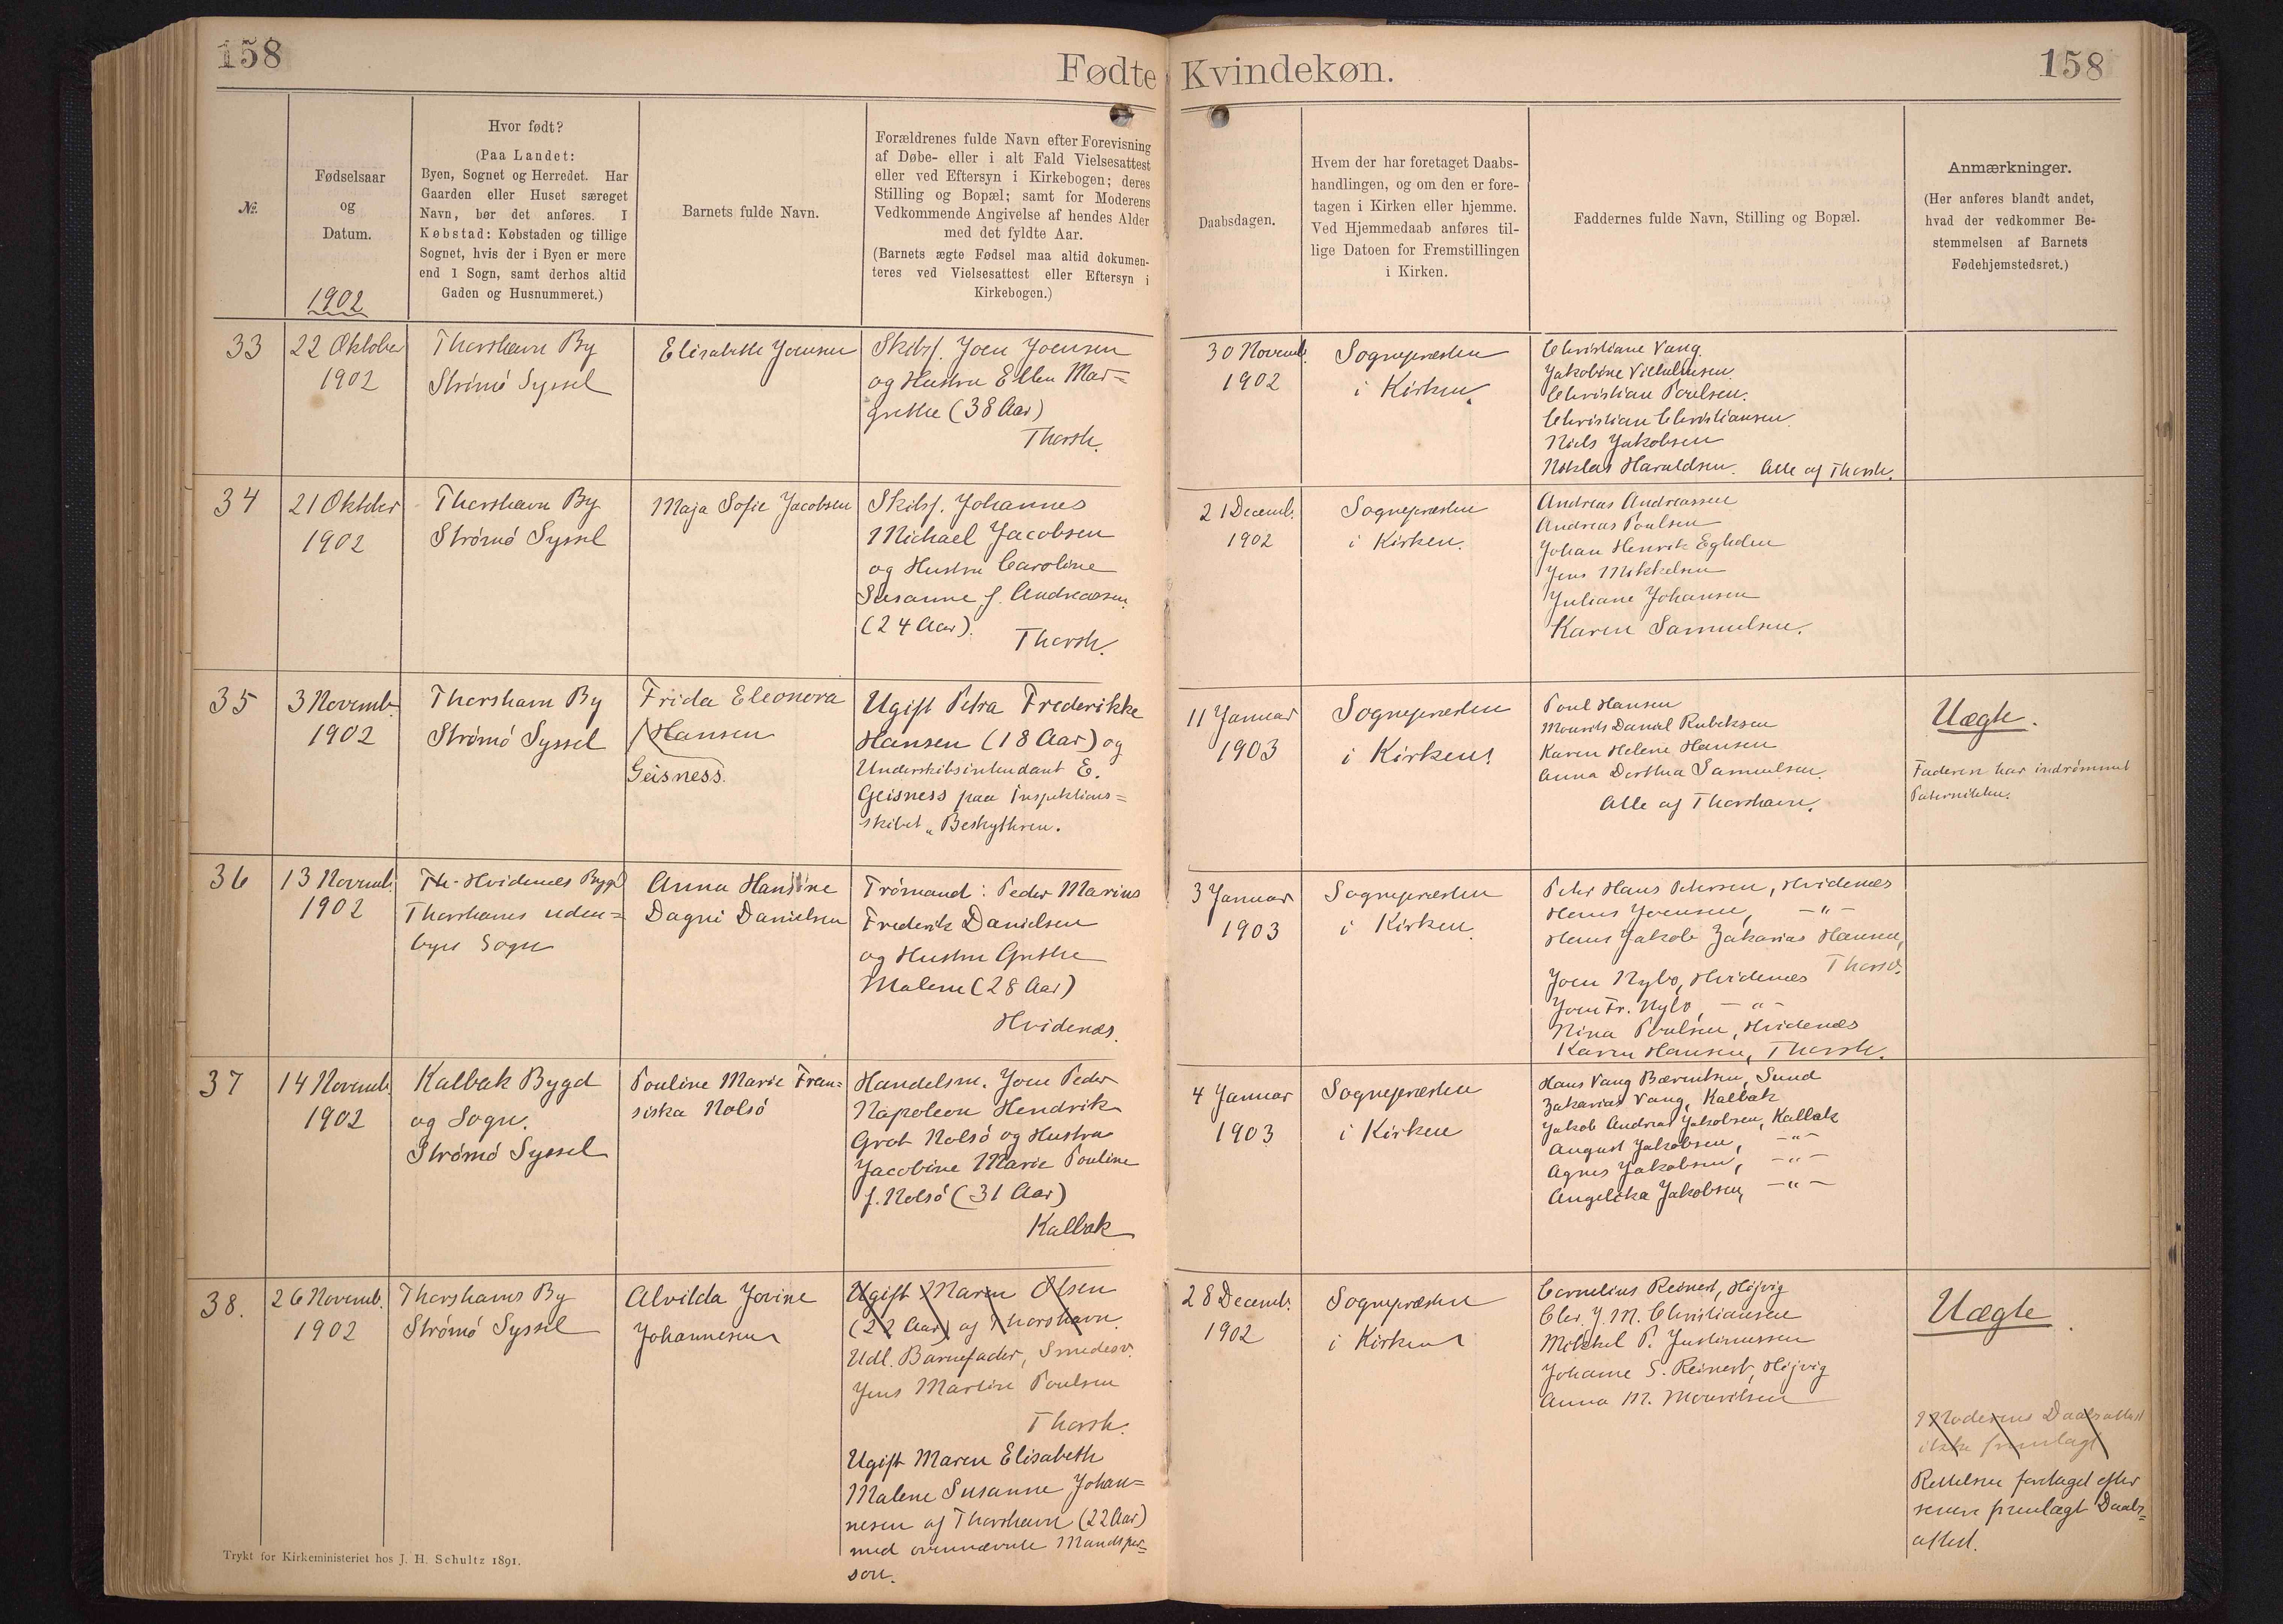 158
Fødte
Kvindekøn.
158
№.
Fødselsaar
og
Datum.
1902
Hvor født?
(Paa Landet:
Byen, Sognet og Herredet. Har
Gaarden eller Huset særeget
Navn, bør det anføres. I
Købstad: Købstaden og tillige
Sognet, hvis der i Byen er mere
end 1 Sogn, samt derhos altid
Gaden og Husnummeret.)
Barnets fulde Navn.
Forældrenes fulde Navn efter Forevisning
af Døbe- eller i alt Fald Vielsesattest
eller ved Eftersyn i Kirkebogen; deres
Stilling og Bopæl; samt for Moderens
Vedkommende Angivelse af hendes Alder
med det fyldte Aar.
(Barnets ægte Fødsel maa altid dokumen-
teres ved Vielsesattest eller Eftersyn i
Kirkebogen.)
Daabsdagen.
Hvem der har foretaget Daabs-
handlingen, og om den er fore-
tagen i Kirken eller hjemme.
Ved Hjemmedaab anføres til-
lige Datoen for Fremstillingen
i Kirken.
Faddernes fulde Navn, Stilling og Bopæl.
Anmærkninger.
(Her anføres blandt andet,
hvad der vedkommer Be-
stemmelsen af Barnets
Fødehjemstedsret.)
33
22 Oktober
1902
Thorshavn By
Strømø Syssel
Elisabeth Joensen
Skibsf. Joen Joensen
og Hustru Ellen Mar=
grethe (38 Aar)
Thorsh.
30 Novemb.
1902
Sognepræsten
i Kirken.
Christiane Vang.
Jakobine Vilhelmsen.
Christian Poulsen.
Christian Christiansen.
Niels Jakobsen
Niklas Haraldsen. Alle af Thorsh.
34
21 Oktober
1902
Thorshavn By
Strømø Syssel
Maja Sofie Jacobsen
Skibsf. Johannes
Michael Jacobsen
og Hustru Caroline
Susanne f. Andreasen
(24 Aar).
Thorsh.
21 Decemb.
1902
Sognepræsten
i Kirken.
Andreas Andreassen
Andreas Poulsen
Johan Henrik
Jens Mikkelsen
Juliane Johansen
Karen Samuelsen.
35
3 Novemb.
1902
Thorshavn By
Strømø Syssel
Frida Eleonora
Hansen
Geisness.
Ugift Petra Frederikke
Hansen (18 Aar) og
Underskibsintendant E.
Geisness paa Inspektions=
skibet „Beskytteren.
11 Januar
1903
Sognepræsten
i Kirken
Poul Hansen
Mourits Danial Rubeksen
Karen Helene Hansen
Anna Dorthea Samuelsen.
Alle af Thorshavn.
Uægte.
Faderen har indrømmet
Paterniteten.
36
13 Novemb.
1902
Th. Hvidenæs Bygd
Thorshavns uden=
byes Sogn
Anna Hansine
Dagni Danielsen
Trómand: Peder Marius
Frederik Danielsen
og Hustru Grethe
Malene (28 Aar)
Hvidenæs.
3 Januar
1903
Sognepræsten
i Kirken.
Peter Hans Petersen, Hvidenæs
Hans Joensen, -"-
Hans Jakob Zakarias Hansen,
Thorsh.
Joen Nybo, Hvidenæs
Joen Fr. Nybo, -"-
Nina Poulsen, Hvidenæs
Karen Hansen, Thorsh.
37
14 Novemb.
1902
Kalbak Bygd
og Sogn.
Strømø Syssel
Pouline Marie Fran=
siska Nolsø
Handelsm. Joen Peder
Napoleon Hendrik
Grot Nolsø og Hustru
Jacobine Marie Pouline
f. Nolsø (31 Aar)
Kalbak
4 Januar
1903
Sognepræsten
i Kirken
Hans Vang Bærentsen, Sund
Zakarias Vang, Kalbak
Jakob Andreas Jakobsen, Kalbak
August Jakobsen, -"-
Agnes Jakobsen, -"-
Angelika Jakobsen, -"-
38.
26 Novemb.
1902
Thorshavns By
Strømø Syssel
Alvilda Jovine
Johannesen
Ugift Maren Olsen
(22 Aar) af Thorshavn.
Udl. Barnefader, Smedesv.
Jens Martin Poulsen
Thorsh.
Ugift Maren Elisabeth
Malene Susanne Johan=
nesen af Thorshavn (22 Aar)
med ovennævnte Mandsper=
son.
28 Decemb.
1902
Sognepræsten
i Kirken
Cornelius Reinert, Højvig
Chr. J. M. Christiansen
Mikkel P. Justinussen
Johanne S. Reinert, Højvig
Anna M. Mouritsen
Uægte.
Moderens Daabsattest
ikke fremlagt
Rettelsen foretaget efter
senere fremlagt Daabs=
attest.
Trykt for Kirkeministeriet hos J. H. Schultz 1891.